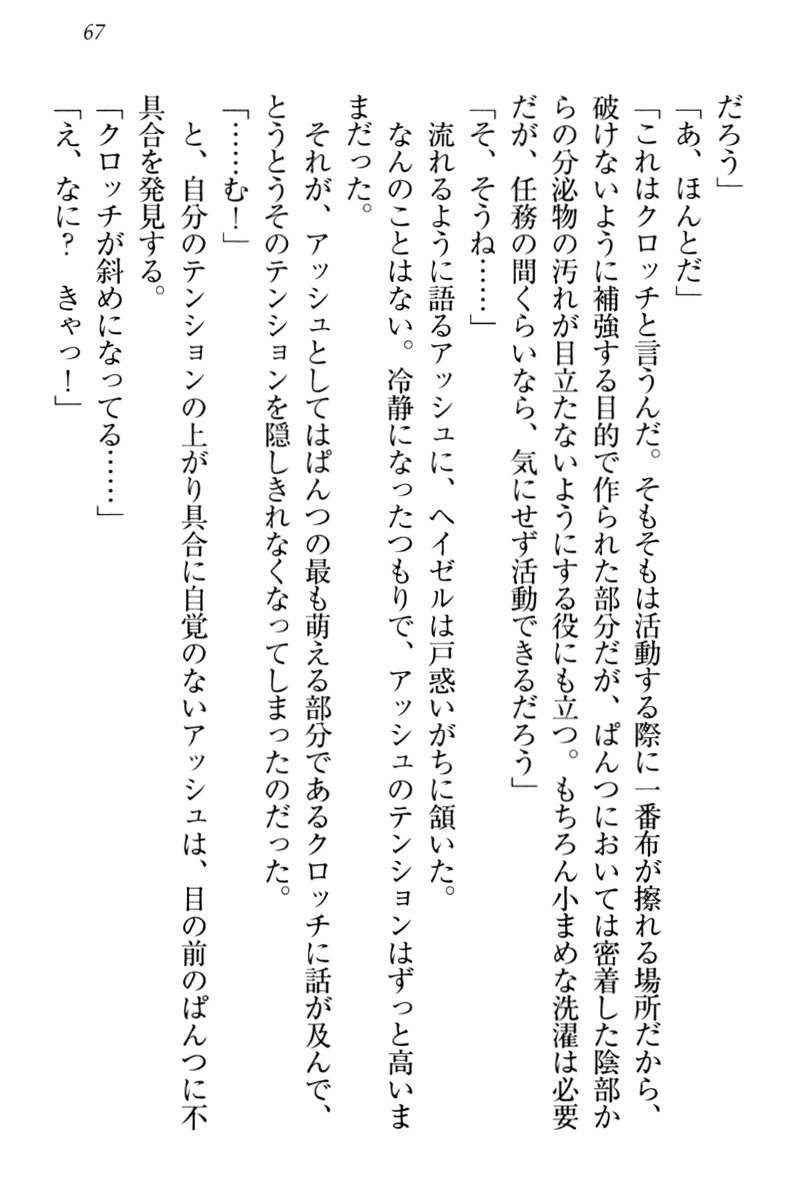 67
だろう」
「あ、ほんとだ」
「これはクロッチと言うんだ。そもそもは活動する際に一番布が擦れる場所だから、
破けないように補強する目的で作られた部分だが、ぱんつにおいては密着した陰部か
らの分泌物の汚れが目立たないようにする役にも立つ。もちろん小まめな洗濯は必要
だが、任務の間くらいなら、気にせず活動できるだろう」
「そ、そうね……」
流れるように語るアッシュに、ヘイゼルは戸惑いがちに頷いた。
なんのことはない。冷静になったつもりで、アッシュのテンションはずっと高いま
まだった。
それが、アッシュとしてはぱんつの最も萌える部分であるクロッチに話が及んで、
とうとうそのテンションを隠しきれなくなってしまったのだった。
「……む！」
と、自分のテンションの上がり具合に自覚のないアッシュは、目の前のぱんつに不
具合を発見する。
「クロッチが斜めになってる……」
「え、なに？　きゃっ！」